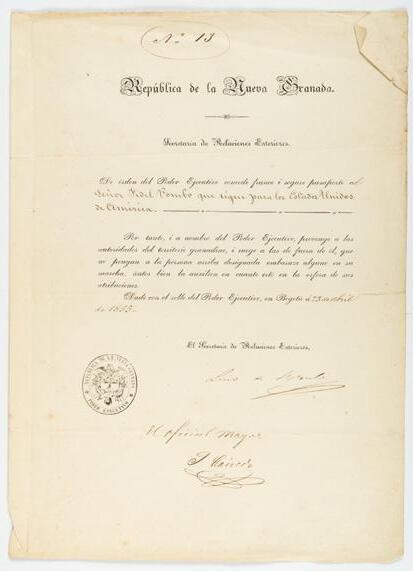 Nº 13
República de la Nueva Granada.
Secretaria de Relaciones Esteriores.
De órden del Poder Ejecutivo concede franco i seguro pasaporte al
Señor Fidel Pombo que sigue para los Estados Unidos
de América.
Por tanto, i a nombre del Poder Ejecutivo, previene a las
autoridades del territorio granadino, i ruega a las de fuera de él, que
no pongan a la persona arriba designada embarazo alguno en su
marcha, ántes bien la auxilien en cuanto esté en la esfera de sus
atribuciones.
Dado con el sello del Poder Ejecutivo, en Bogotá a 23 de abril
de 1855.
El Secretario de Relaciones Esteriores,
El oficial Mayor
PODER EJECUTIVO